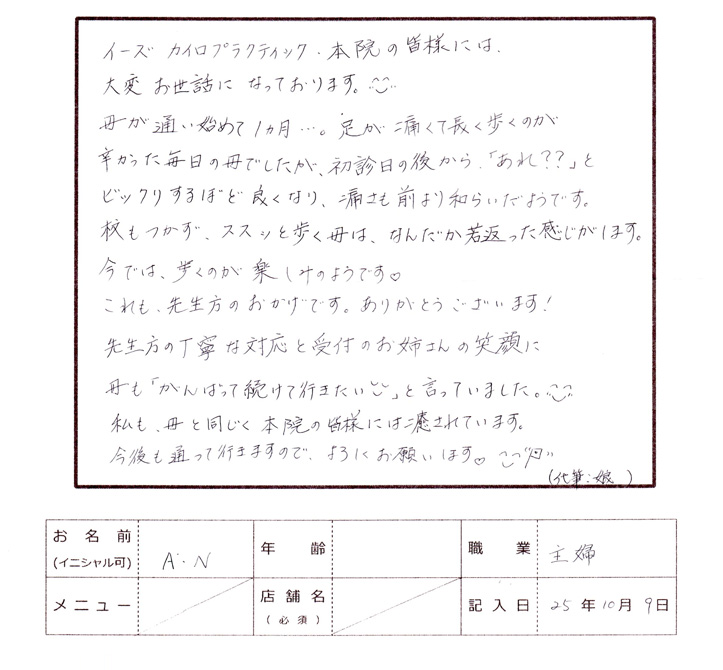 イーズ カイロプラクティック・本院の皆様には、
大変お世話になっております。
母が通い始めて1ヵ月…。足が痛くて長く歩くのが
辛かった毎日の母でしたが、初診日の後から、「あれ??」と
ビックリするほど良くなり、痛さも前より和らいだようです。
杖もつかず、ススッと歩く母は、なんだか若返った感じがします。
今では、歩くのが楽しみのようです♡
これも、先生方のおかげです。ありがとうございます!
先生方の丁寧な対応と受付のお姉さんの笑顔に
母も「がんばって続けて行きたい」と言っていました。
私も、母と同じく本院の皆様には癒されています。
今後も通って行きますので、よろにお願いします♡
(代筆:娘)
お名前 (イニシャル可) A・N 年齢 職業 主婦
メニュー 店舗名 (必須) 記入日 25年10月9日